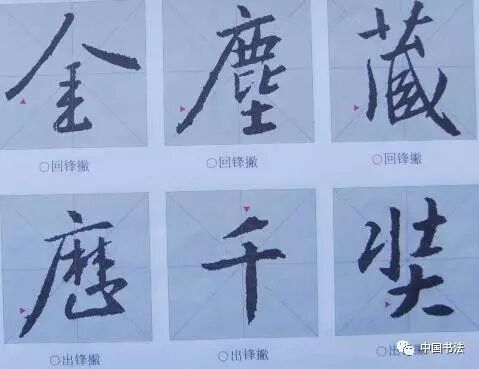 金 塵 藏
○回锋撇 ○回锋撇 ○回锋撇
歷 千 奘
○出锋撇 ○出锋撇 ○出锋撇
中国书法